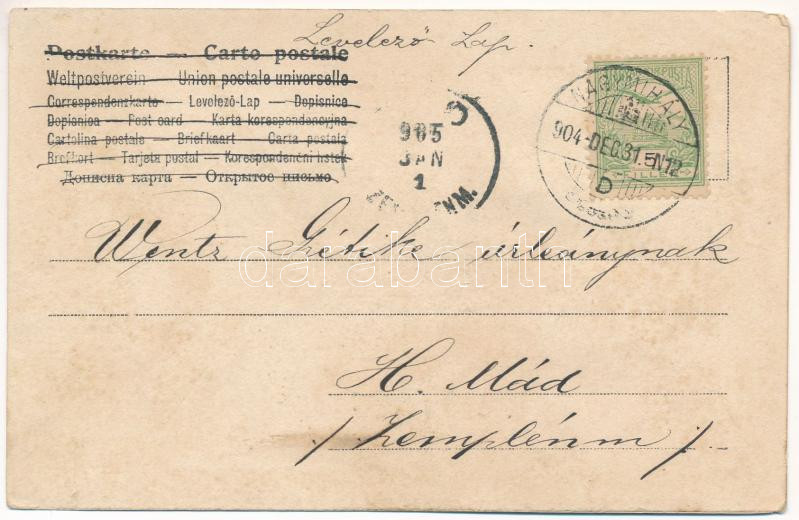 Levelező Lap.
Postkarte — Carte postale
Weltpostverein — Union postale universelle
Correspondenzkarte — Levelező-Lap — Dopisnice
Dopisnica — Post card — Karta korespondencyjna
Cartolina postale — Briefkaart — Carta postala
Brefkort — Tarjeta postal — Korespondenční lístek
Дописна карта — Открытое письмо
NAGYMIHÁLY
904-DEC.31.-N12
D
905
JAN
1
NM.
FILLÉR
Wentz Grétike úrleánynak
darabanth
H. Mád
/Zemplénm/